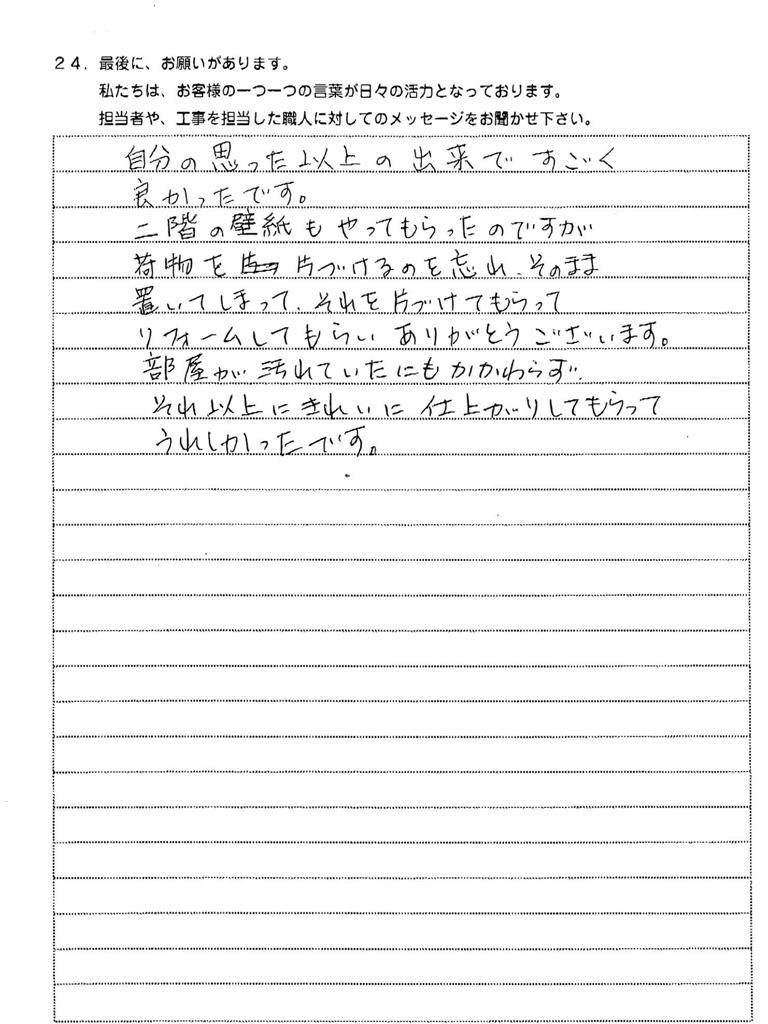 24. 最後に、お願いがあります。
私たちは、お客様の一つ一つの言葉が日々の活力となっております。
担当者や、工事を担当した職人に対してのメッセージをお聞かせ下さい。
自分の思った以上の出来ですごく
良かったです。
二階の壁紙もやってもらったのですが
荷物を片づけるのを忘れ、そのまま
置いてしまって、それを片づけてもらって
リフォームしてもらいありがとうございます。
部屋が汚れていたにもかかわらず、
それ以上にきれいに仕上がりしてもらって
うれしかったです。